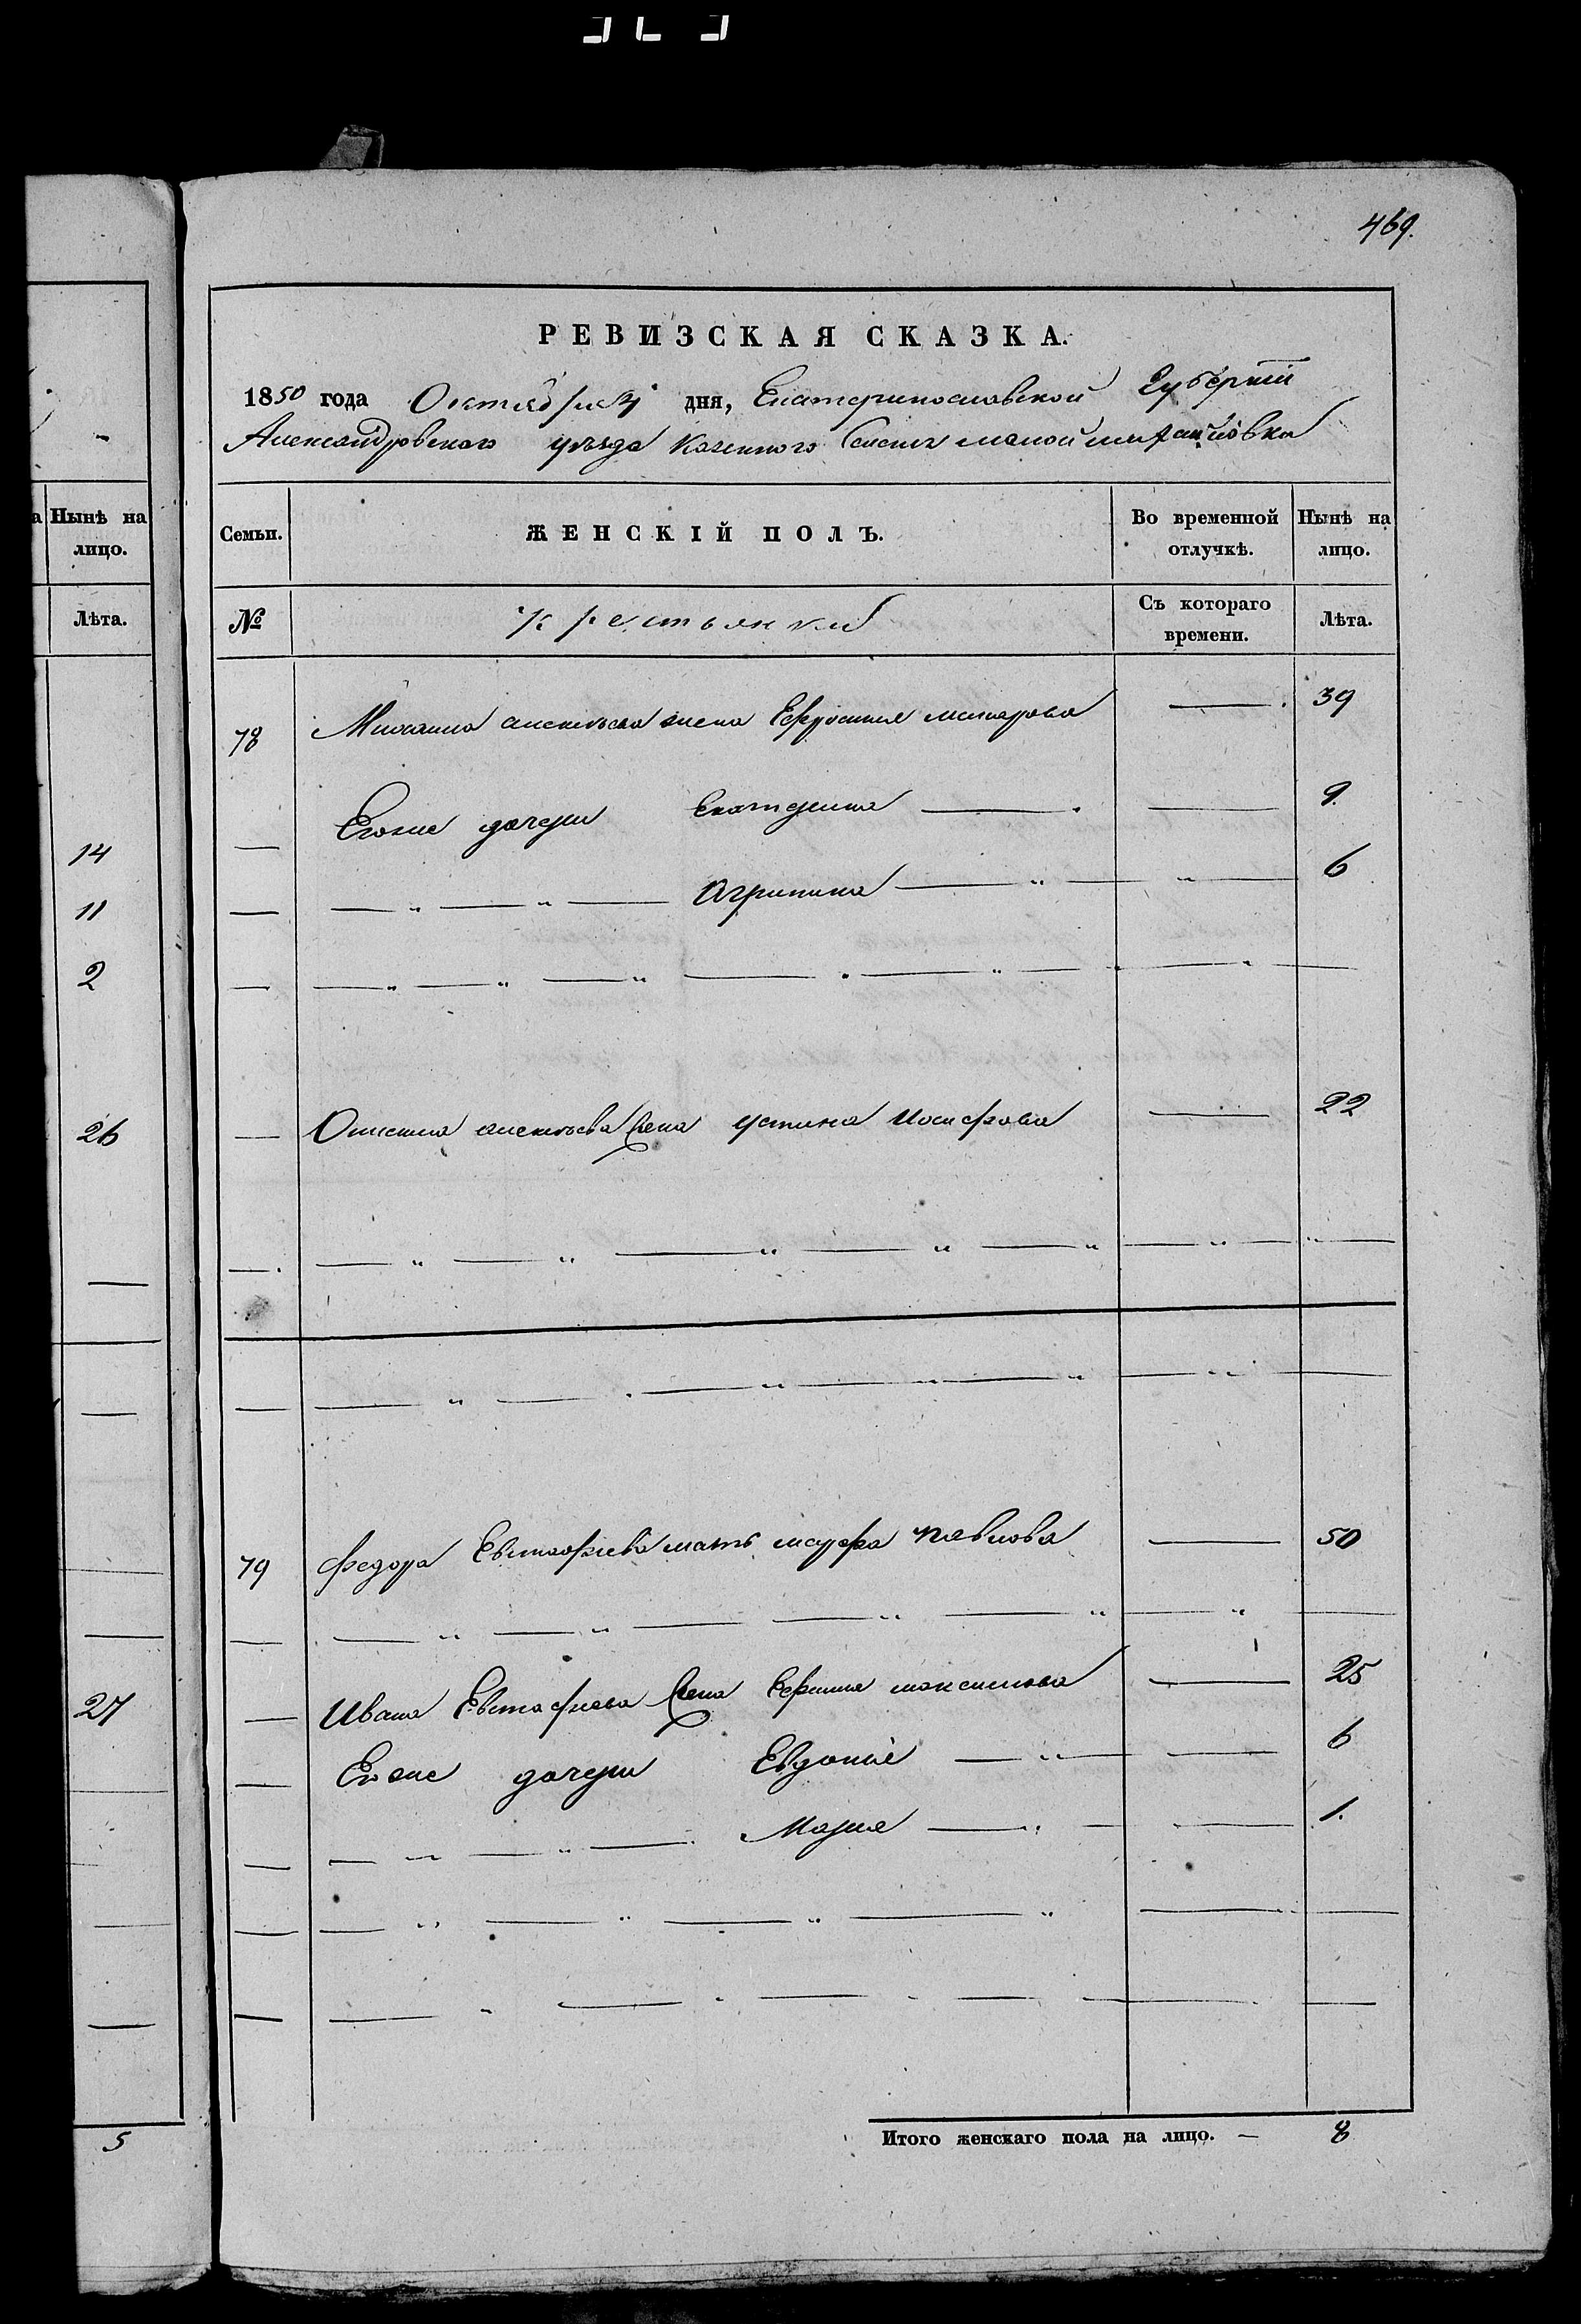 469.
РЕВИЗСКАЯ СКАЗКА.
1850 года Октября дня, Екатеринославской Губернии
Александровского уезда Казенного Селения малой михайловки
а Нынѣ на лицо.
Лѣта.
14
11
2
26
27
5
Семьи. ЖЕНСКІЙ ПОЛЪ. Во временной отлучкѣ. Нынѣ на лицо.
№ Крестьянки Съ котораго времени. Лѣта.
78 Михаила алексѣева жена Ефросиния макарова — 39
— Егоже дочери Екатерина — — 9.
— — " — " — Агрипина — " — " — 6
— алексѣева жена устина иосифова — 22
79 федора Евстафиева мать марфа павлова — 50
— Ивана Евстафиева жена Ефимия максимова — 25
— Егоже дочери Евдокия — " — — 6
— — " — " — Мария — " — — 1.
Итого женскаго пола на лицо. — 8